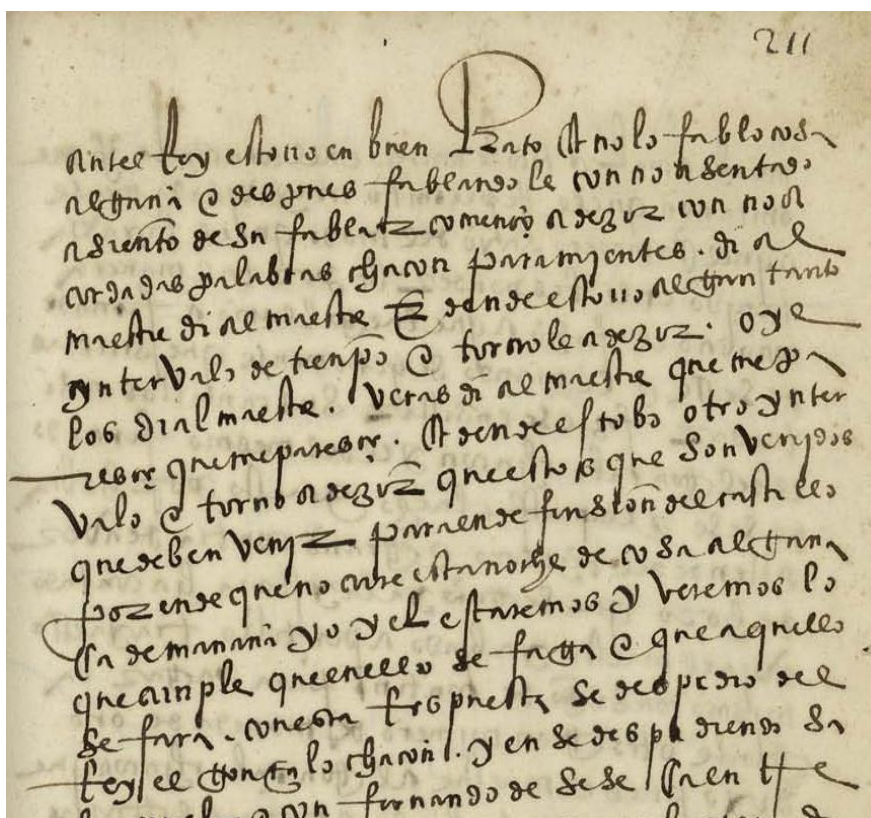 211
ante el Rey estouo en buen Rato q̃ no lo fablo cosa
alguna e despues fablandole con no asentado
asiento de su fablar començo a dezir con no a
cordadas palabras chacon paramientes . di al
maestre di al maestre E dende estouo algun tanto
ynterualo de tienpo e tornole a dezir . oye
los di al maestre . veras di al maestre que me pa
resçe que me paresçe . E dende estobo otro ynter
valo e torno a dezir que estos que son venydos
que deben venyr para ende funsion del castillo
por ende que no cure esta noche de cosa alguna
ca de manana yo y el estaremos y veremos lo
que cunple que en ello se faga e que aquello
se fara . con esta Respuesta se despedio del
Rey el gonçalo chacon . y en se despidiendo sa
con fernando de Sese